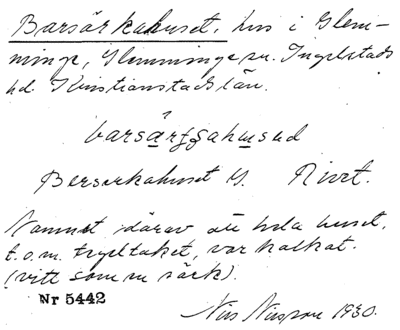 Barsärkahuset, hus i Glem-
minge, Glemminge sn. Ingelstads
hd. Kristianstads län.
barsärkahused
Berserkahuset G. Rivet.
Namnet därav att hela huset,
t.o.m. tegeltaket, var kalkat.
(vitt som en särk).
Nr 5442
Nils Nilsson 1930.